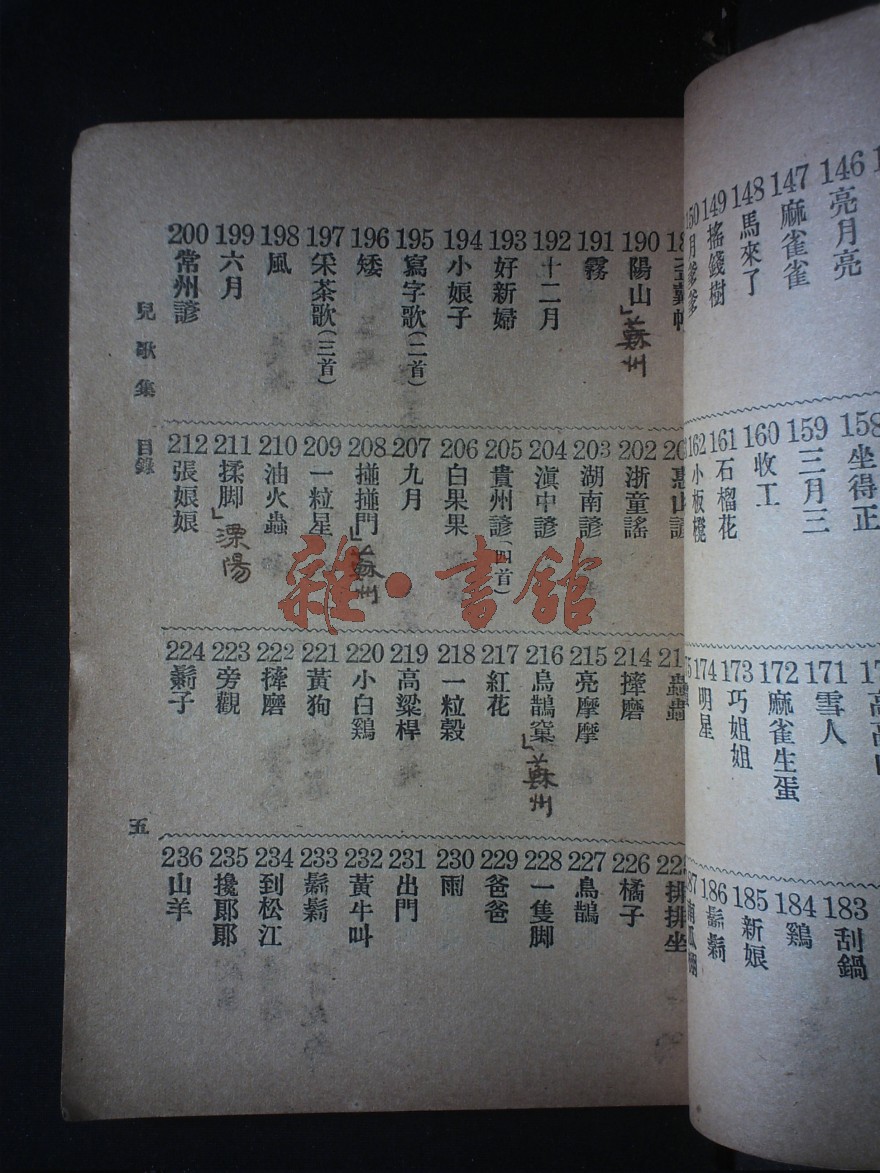 146 亮月亮
147 麻雀雀
148 馬來了
149 搖錢樹
150 月爹爹
158 坐得正
159 三月三
160 收工
161 石榴花
162 小板櫈
171 雪人
172 麻雀生蛋
173 巧姐姐
174 明星
183 刮鍋
184 鷄
185 新娘
186 鬍鬍
190 陽山 蘇州
191 霧
192 十二月
193 好新婦
194 小娘子
195 寫字歌(二首)
196 矮
197 采茶歌(三首)
198 風
199 六月
200 常州諺
惠山諺
202 浙童謠
203 湖南諺
204 滇中諺
205 貴州諺(四首)
206 白果果
207 九月
208 搕搕門 蘇州
209 一粒星
210 油火蟲
211 揉脚 溧陽
212 張娘娘
蟲蟲
214 摔磨
215 亮摩摩
216 烏鵲窠 蘇州
217 紅花
218 一粒穀
219 高梁桿
220 小白鷄
221 黃狗
222 摔磨
223 旁觀
224 鬍子
225 排排坐
226 橘子
227 烏鵲
228 一隻脚
229 爸爸
230 雨
231 出門
232 黃牛叫
233 鬍鬍
234 到松江
235 攙郞郞
236 山羊
兒歌集 目錄
五
雜·書館